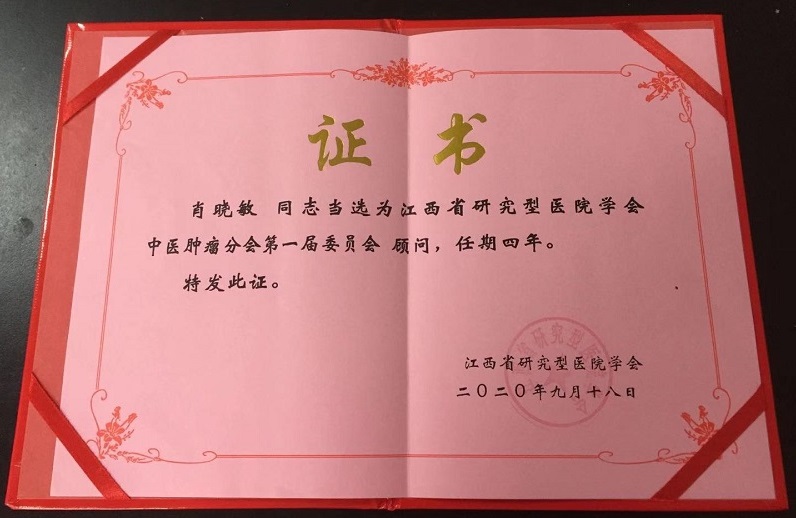 证书
肖晓敏 同志当选为江西省研究型医院学会
中医肿瘤分会第一届委员会 顾问，任期四年。
特发此证。
江西省研究型医院学会
二〇二〇年九月十八日